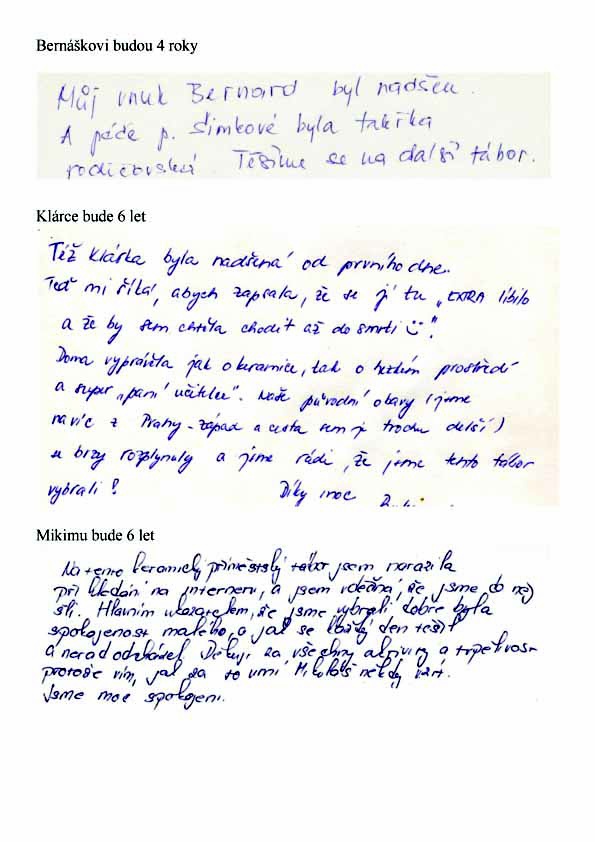 Bernáškovi budou 4 roky
Můj vnuk Bernard byl nadšen.
A péče p. Šimkové byla takřka
rodičovská. Těšíme se na další tábor.
Klárce bude 6 let
Též Klárka byla nadšená od prvního dne.
Teď mi říká, abych zapsala, že se jí tu „EXTRA líbilo
a že by sem chtěla chodit až do smrti ☺“!
Doma vyprávěla jak o keramice, tak o hezkém prostředí
a super „paní učitelce“. Naše původní obavy (jsme
navíc z Prahy-západ a cesta sem je trochu delší)
se brzy rozplynuly a jsme rádi, že jsme tento tábor
vybrali! Díky moc
Mikimu bude 6 let
Na tento keramický příměstský tábor jsem narazila
při hledání na internetu, a jsem vděčná, že jsme do něj
šli. Hlavním ukazatelem, že jsme vybrali dobře byla
spokojenost malého, a jak se každý den těšil
a nerad odcházel. Děkuji za všechny aktivity a trpělivost
protože vím, jak za to umí Mikuláš někdy vzít.
Jsme moc spokojeni.